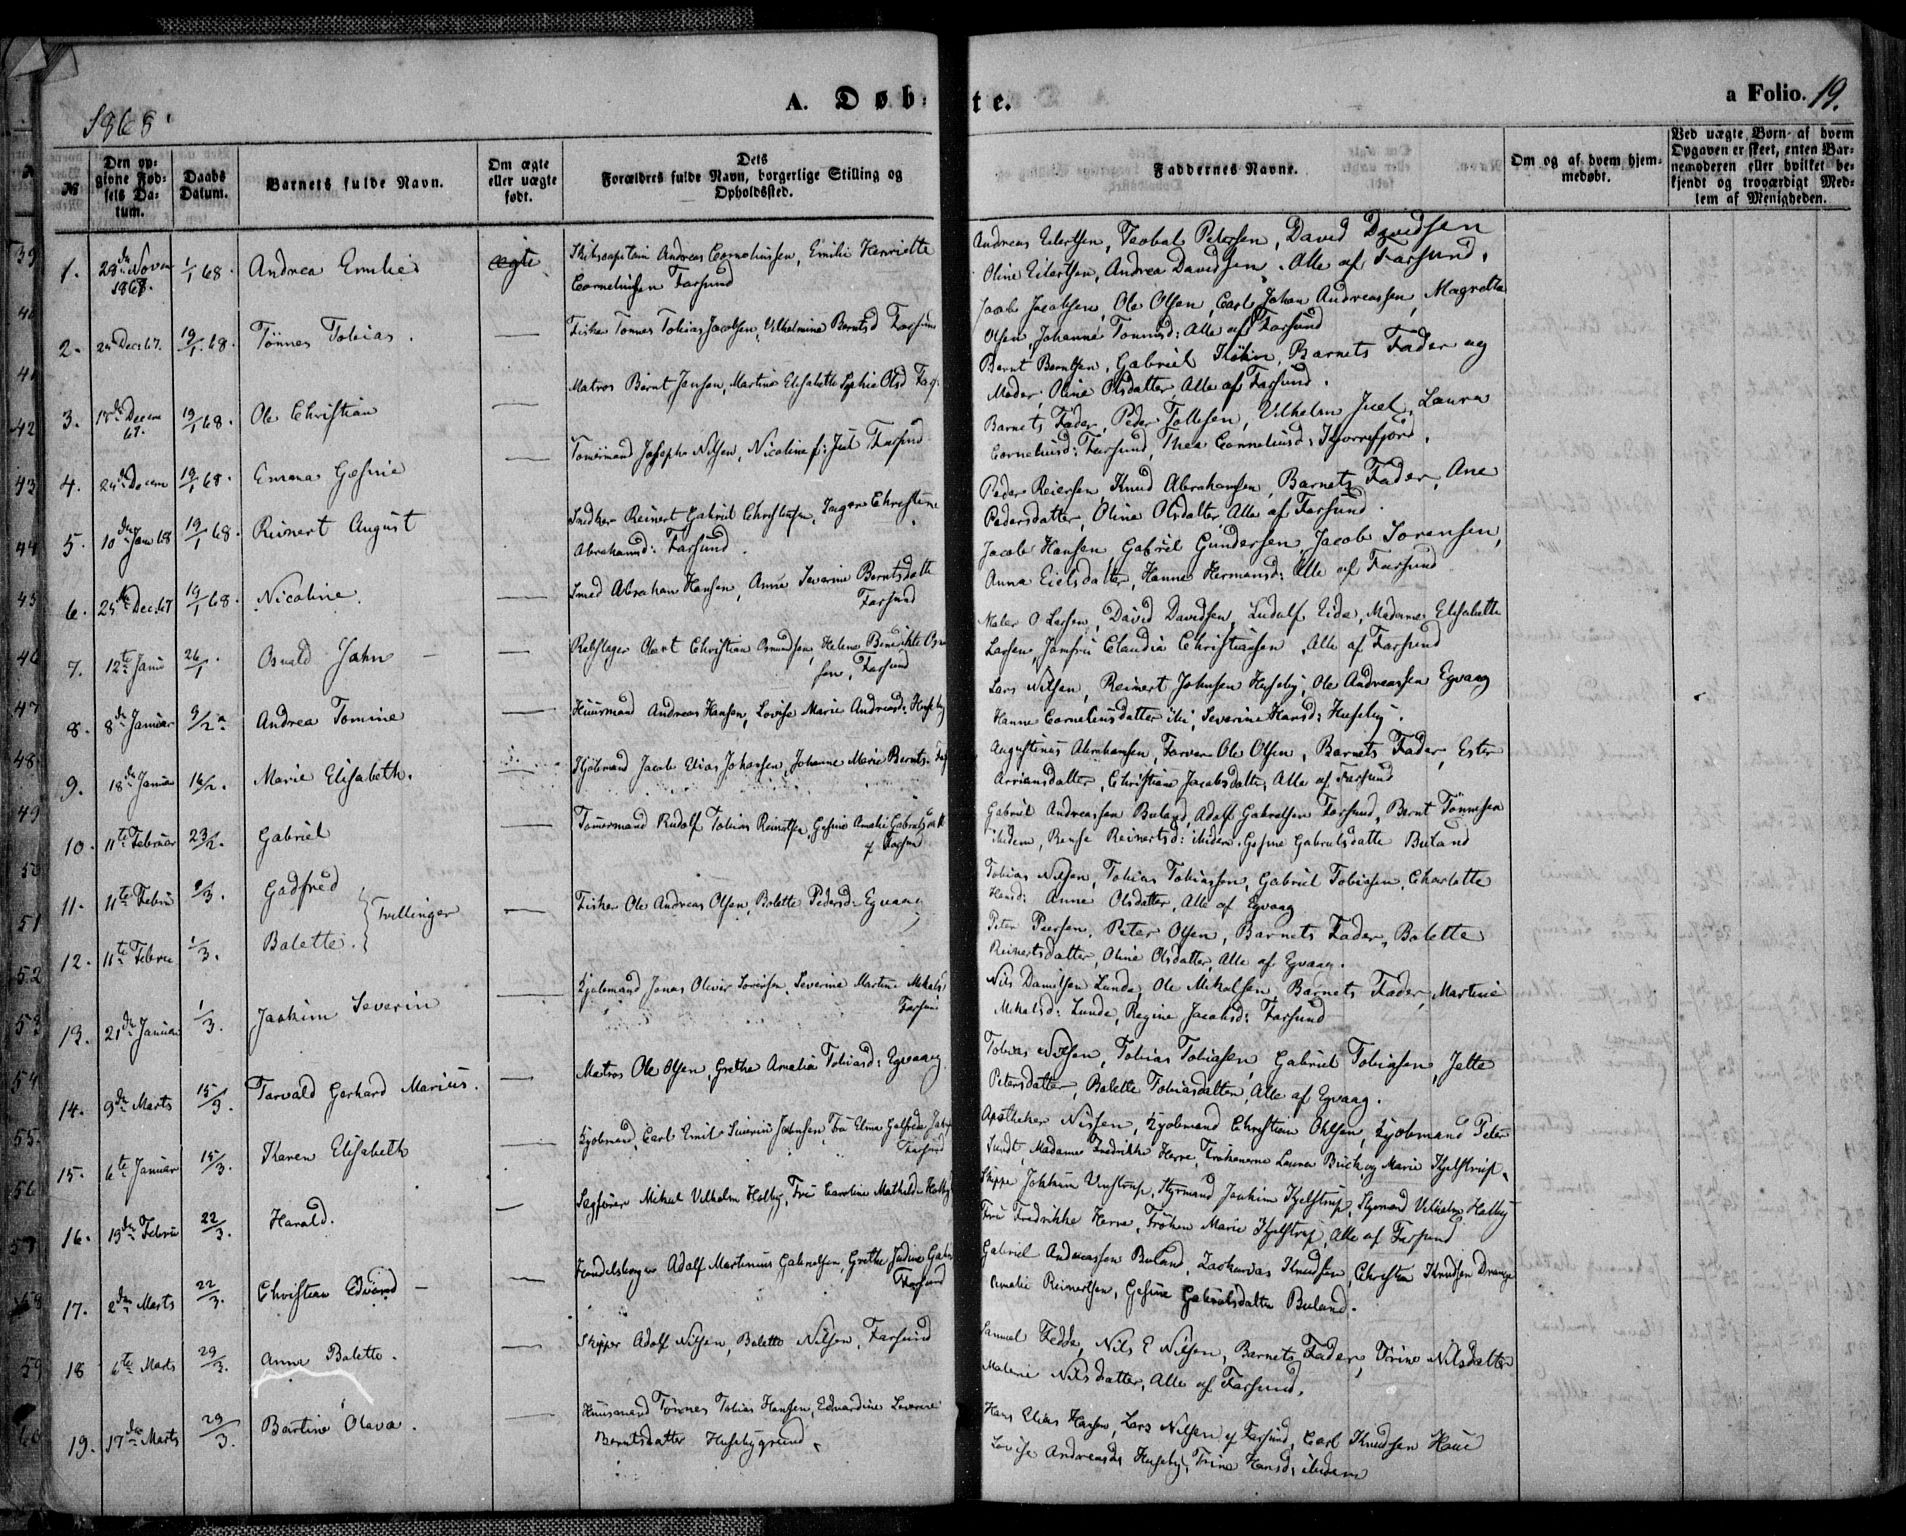 1868
A. Døb-
te.
a Folio. 19.
№
Den op-
givne Fød-
sels Da-
tum.
Daabs
Datum.
Barnets fulde Navn.
Om ægte
eller uægte
født.
Dets
Forældres fulde Navn, borgerlige Stilling og
Opholdssted.
Faddernes Navne.
Om og af hvem hjem-
medøbt.
Ved uægte Børn- af hvem
Opgaven er skeet, enten Bar-
nemoderen eller hvilket be-
kjendt og troværdigt Med-
lem af Menigheden.
1. 1/1 68. Andrea Emilie ægte Skibscapitain Andreas Corneliussen, Emilie Henriette
Corneliussen Farsund
Andreas Eilertsen, Teobal Petersen, David Davidsen
Oline Eilertsen, Andrea Davidsen, Alle af Farsund.
2. 24 Decr 67. 19/1 68. Tønnes Tobias. Fisker Tønnes Tobias Jacobsen, Vilhelmine Berntsd Farsund
Jacob Jacobsen, Ole Olsen, Carl Johan Andreassen, Magrethe
Olsen, Johanne Tønnesd: Alle af Farsund
3. 19/1 68. Ole Christian Matros Bernt Jensen, Martine Elisabeth Sophie Olsd
Bernt Berntsen, Gabriel, Barnets Fader og
Moder, Oline Olsdatter, Alle af Farsund.
4. 24de Decem 19/1 68. Emma Gesine Tømmermand Joseph Nilsen, Nicoline f: Juel Farsund
Barnets Fader, Peder Tollefsen, Vilhelm Juel, Laura
Corneliusd: Farsund, Thea Corneliusd:
5. 10de Jan 68 19/1 68. Reinert August Snedker Reinert Gabriel Christensen, Inger Christine
Abrahamsd: Farsund.
Peder Reiersen, Knud Abrahamsen, Barnets Fader, Ane
Pedersdatter, Oline Olsdatter, Alle af Farsund.
6. 25de Dec: 67 19/1 68. Nicoline. Smed Abraham Hansen, Anne Severine Berntsdatte
Farsund
Jacob Hansen, Gabriel Gundersen, Jacob Sørensen,
Anna Eielsdatter, Hanne Hermansd: Alle af Farsund
7. 12te Janu 26/1. Osvald Jahn Rebslager Christian Osmundsen, Helene Benedikte
Farsund
Maler O Larsen, David Davidsen, Ludolf Eide, Madame Elisabette
Larsen, Jomfru Claudia Christiansen, Alle af Farsund
8. 8de Januar 9/2 Andrea Tomine Huusmand Andreas Hansen, Lovise Marie Andreasd: Huseby
Lars Nilsen, Reinert Johnsen Huseby, Ole Andreassen Egvaag
Hanne Corneliusdatter ibi, Severine Hansd: Huseby.
9. 18de Januar 16/2. Marie Elisabeth. Kjøbmand Jacob Elias Johansen, Johanne Marie Bernts.
Augustinus Abrahamsen, Farver Ole Olsen, Barnets Fader, Ester
Arriansdatter, Christiane Jacobsdatter, Alle af Farsund
10. 11te Februar 23/2. Gabriel Tømermand Rudolf Tobias Reinertsen, Gesine Amalie
Gabriel Andreassen Buland, Adolf Gabrielsen Farsund, Bernt Tønnesen
ibidem, Reinertsd: ibidem, Gesine Gabrielsdatte Buland
11. 11te Febru 1/3. Gadfred } Tvillinger Fisker Ole Andreas Olsen, Bolette Pedersd: Egvaag
Tobias Nilsen, Tobias Tobiassen, Gabriel Tobiasen, Charlotte
Hansd: Anne Olsdatter, Alle af Egvaag
12. 11te Febru 1/3. Bolette.
Peter Olsen, Barnets Fader, Bolette
Reinertsdatter, Oline Olsdatter, Alle af Egvaag.
13. 21de Januar 1/3. Joakim Severin Kjøbmand Jonas Olivir Sørensen, Severine Martine
Farsund
Nils Danielsen Lunde, Ole Mikalsen, Barnets Fader, Martine
Mikalsd: Lunde, Regine Jacobsd: Farsund
14. 9de Marts 15/3. Torvald Gerhard Marius. Matros Ole Olsen, Grethe Amalia Tobiasd: Egvaag
Tobias Nilsen, Tobias Tobiasen, Gabriel Tobiasen, Jette
Petersdatter, Bolette Tobiasdatter, Alle af Egvaag.
15. 6te Januar 15/3. Karen Elisabeth Kjøbmand, Carl Emil Severin Jahnsen, Fru
Farsund
Apotheker Nissen, Kjøbmand Christian Ohlsen, Kjøbmand Peter
Sundt, Madame Fredrikke Herre, Frøknerne Laura Buch og Marie Kjelstrup.
16. 19de Febru 22/3. Harald. Sagfører Mikal Vilhelm Holby, Fru Caroline Mathilde
Skipper Styrmand Joakim Kjelstrup, Styrmand Vilhelm
Fru Fredrikke Herre, Frøken Marie Kjelstrup, Alle af Farsund
17. 2den Marts 22/3. Christian Edvard Handelsborger Adolf Martinius Gabrielsen, Grethe
Farsund
Gabriel Andreassen Buland, Zacharias Knudsen, Christen Knudsen Drange
Amalie Reinertsen, Gesine Gabrielsdatter Buland.
18 6te Marts 29/3. Anna Bolette. Skipper Adolf Nilsen, Bolette Nilsen, Farsund
Samuel Fedde, Nils E Nilsen, Barnets Fader, Trine Nilsdatter
Malene Nilsdatter, Alle af Farsund.
19. 17de Marts 29/3. Bertine Olava. Huusmand Tønnes Tobias Hansen, Edvardine Severine
Berntsdatter Husebygrund.
Hans Elias Hansen, Lars Nilsen af Farsund, Carl Knudsen
Lovise Andreasd: Huseby, Trine Hansd: ibidem